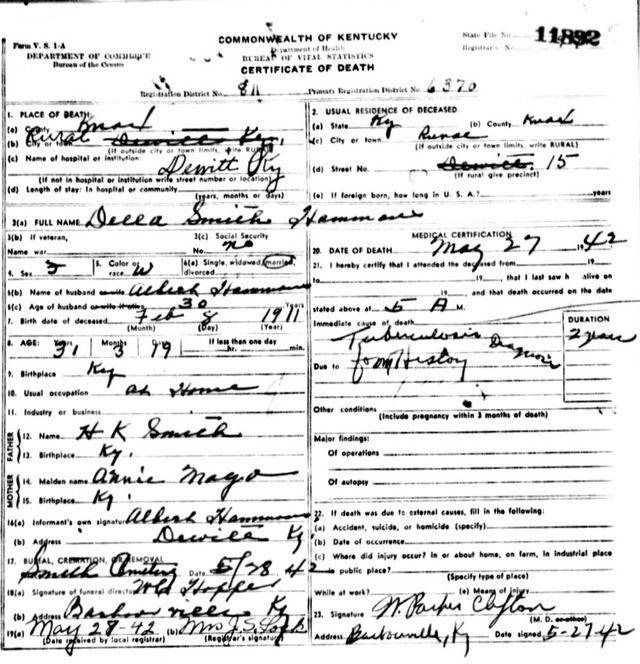 COMMONWEALTH OF KENTUCKY
Form V. S. 1-A
Department of Health
State File No. 11892
DEPARTMENT OF COMMERCE
BUREAU OF VITAL STATISTICS
Registrar's No.
Bureau of the Census
CERTIFICATE OF DEATH
Registration District No. 811 Primary Registration District No. 6370
1. PLACE OF DEATH:
(a) County Knox
(b) City or town Rural Dewitt Ky.
(If outside city or town limits, write RURAL)
(c) Name of hospital or institution: Dewitt Ky
(If not in hospital or institution write street number or location)
(d) Length of stay: In hospital or community
(years, months or days)
2. USUAL RESIDENCE OF DECEASED:
(a) State Ky (b) County Knox
(c) City or town Rural
(If outside city or town limits, write RURAL)
(d) Street No. Dewitt 15
(If rural give precinct)
(e) If foreign born, how long in U. S. A.? years
3(a) FULL NAME Della Smith Hammons
3(b) If veteran, 3(c) Social Security
Name war No. no
4. Sex F 5. Color or race W 6(a) Single, widowed, married, divorced
6(b) Name of husband or wife Albert Hammons
6(c) Age of husband or wife if alive 30 Years
7. Birth date of deceased Feb 8 1911
(Month) (Day) (Year)
8. AGE: Years Months Days If less than one day
31 3 19 hr. min.
9. Birthplace Ky
10. Usual occupation at Home
11. Industry or business
FATHER
12. Name H K Smith
13. Birthplace Ky.
MOTHER
14. Maiden name Annie Mayo
15. Birthplace Ky.
16(a) Informant's own signature Albert Hammons
(b) Address Dewitt Ky
17. BURIAL, CREMATION, OR REMOVAL
Smith Cemetery Date 5/28 42
18(a) Signature of funeral director Wd Hopper
(b) Address Barbourville Ky
19(a) May 28-42 (b) Mrs J. S.
(Date received by local registrar) (Registrar's signature)
MEDICAL CERTIFICATION
20. DATE OF DEATH May 27 1942
21. I hereby certify that I attended the deceased from 19
to 19 , that I last saw h alive on
19 , and that death occurred on the date
stated above at 5 A M.
Immediate cause of death DURATION
Tuberculosis Diagnosis 2 years
Due to from History
Other conditions
(Include pregnancy within 3 months of death)
Major findings:
Of operations
Of autopsy
22. If death was due to external causes, fill in the following:
(a) Accident, suicide, or homicide (specify)
(b) Date of occurrence
(c) Where did injury occur? in or about home, on farm, in industrial place
public place?
(Specify type of place)
While at work? (e) Means of injury
23. Signature W. Parker Clifton
(M. D. or other)
Address Barbourville, Ky Date signed 5-27-42